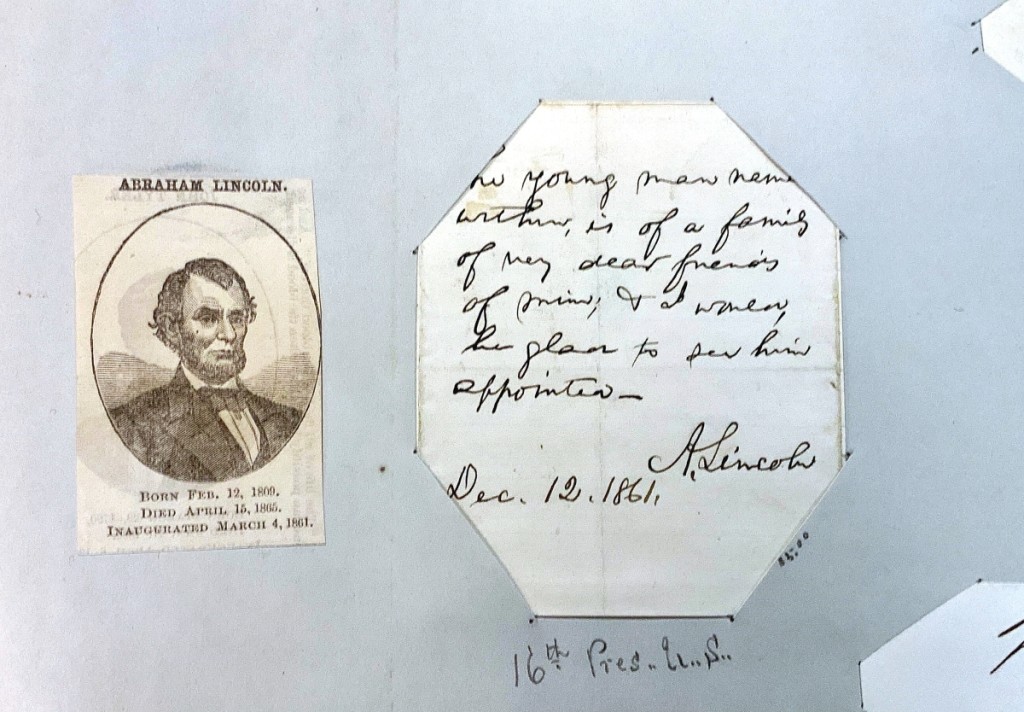 ABRAHAM LINCOLN.
BORN FEB. 12, 1809.
DIED APRIL 15, 1865.
INAUGURATED MARCH 4, 1861.
young man name
within, is of a family
of very dear friends
of mine; & I would
be glad to see him
appointed—
A. Lincoln
Dec. 12. 1861.
16th Pres. U.S.